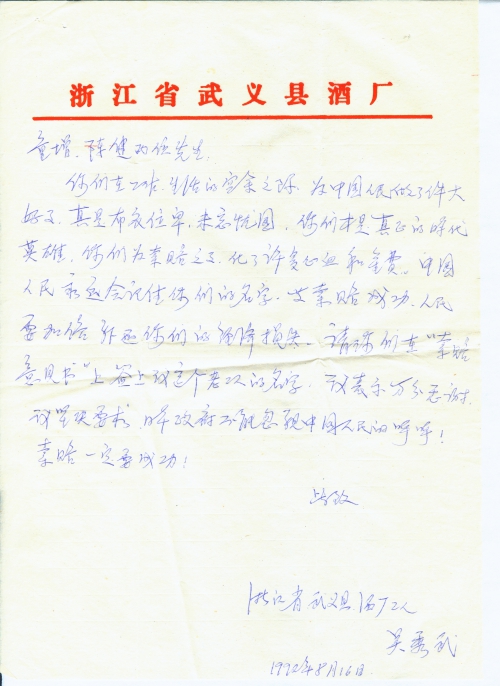 浙江省武义县酒厂
童增、陈健两位先生,
你们在工作、生活的空余之际,为中国人民做了件大
好事,真是布衣位卑,未忘忧国,你们才是真正的时代
英雄,你们为索赔之事,化了许多心血和金费。中国
人民永远会记住你们的名字,
索赔成功,人民
要加倍 你们的经济损失。请你们在“索赔
意见书”上签上我这个老工人的名字,我表示万分感谢,
我坚决要求,日本政府不能忽视中国人民的呼呼!
索赔一定要成功!
此致
浙江省武义县酒厂工人
吴
1992年8月16日